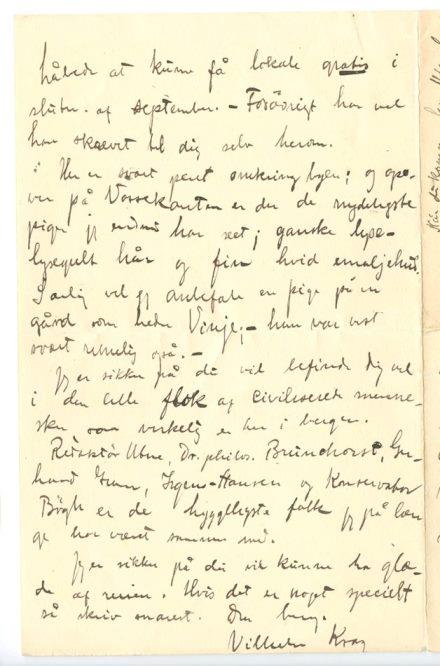 håbede at kunne få lokale gratis i
slutn. af september. – Forøvrigt har vel
han skrevet til dig selv herom.
Her er svært pent omkring byen; og ope-
ver på Vossekanten er der de nydeligste
piger jeg endnu har seet; ganske lyse-
lysegult hår og fin hvid emaljehud.
Særlig vil jeg anbefale en pige på en
gård som heder Vinje; – hun var vist
svært rimelig også. –
Jeg er sikker på du vil befinde dig vel
i den lille flok af civiliserede menne-
sker som virkelig er her i bergen.
Redaktør Dr. philos. Brunchorst, Ger-
hard Gran, Irgens-Hansen og Konservator
Bøgh er de hyggeligste folk jeg på læn
ge har været sammen med.
Jeg er sikker på du vil kunne ha glæ-
de af reisen. Hvis det er noget specielt
så skriv snarest. Din heng.
Vilhelm Krag